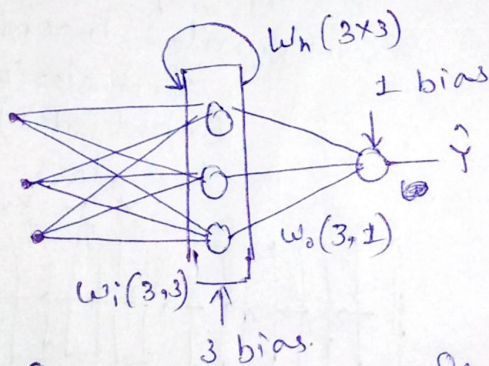 Wh (3×3)
1 bias
Ŷ
Wo (3,1)
Wi (3,3)
3 bias.